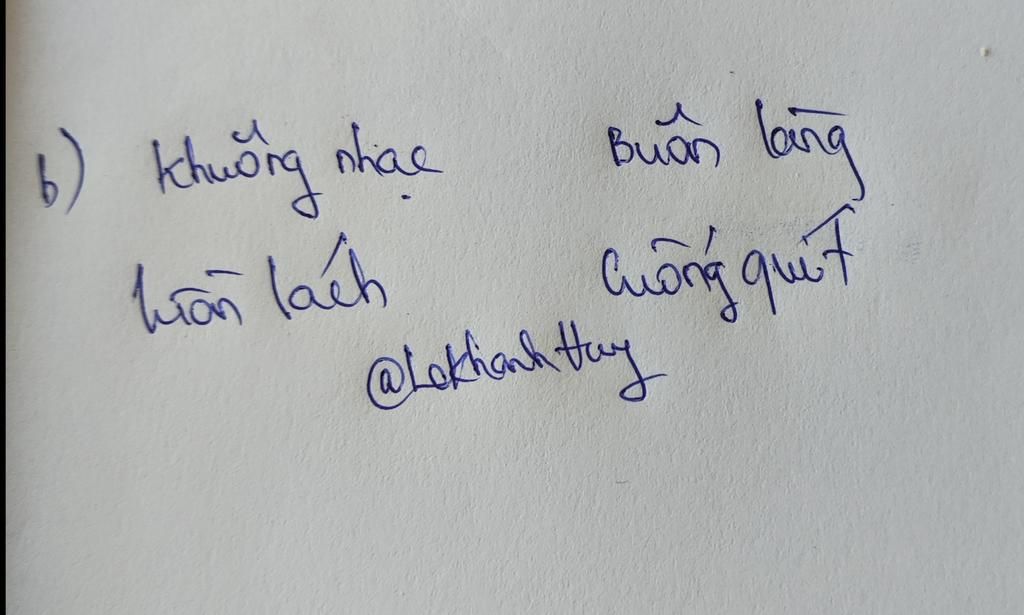 b) Khuông nhạc Buôn làng
luồn lách Cuống quít
@LeKhanhHuy